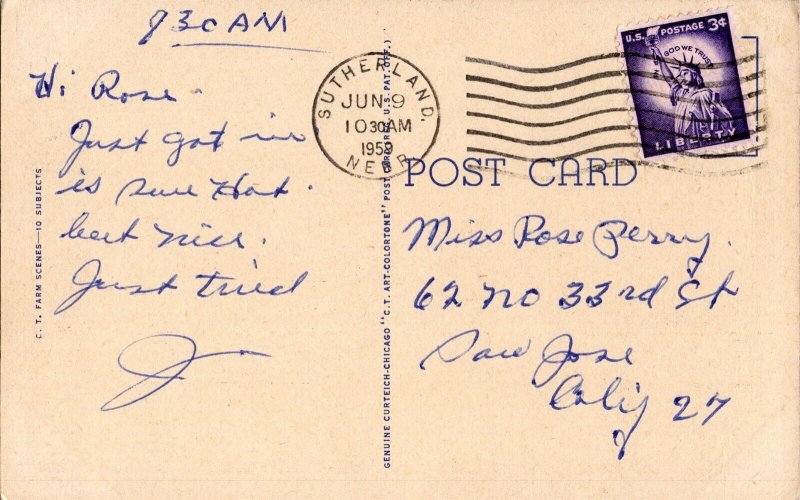 830 AM
Hi Rose.
Just got in
is sure Hot.
but nice.
Just tried
J
C. T. FARM SCENES—10 SUBJECTS
GENUINE CURTEICH-CHICAGO "C. T. ART-COLORTONE" POST CARD (REG. U.S. PAT. OFF.)
SUTHERLAND,
JUN 9
10 30 AM
1959
NEBR.
U.S. POSTAGE 3¢
IN GOD WE TRUST
LIBERTY
POST CARD
Miss Rose Perry.
62 No 33rd St
San Jose
Calif 27